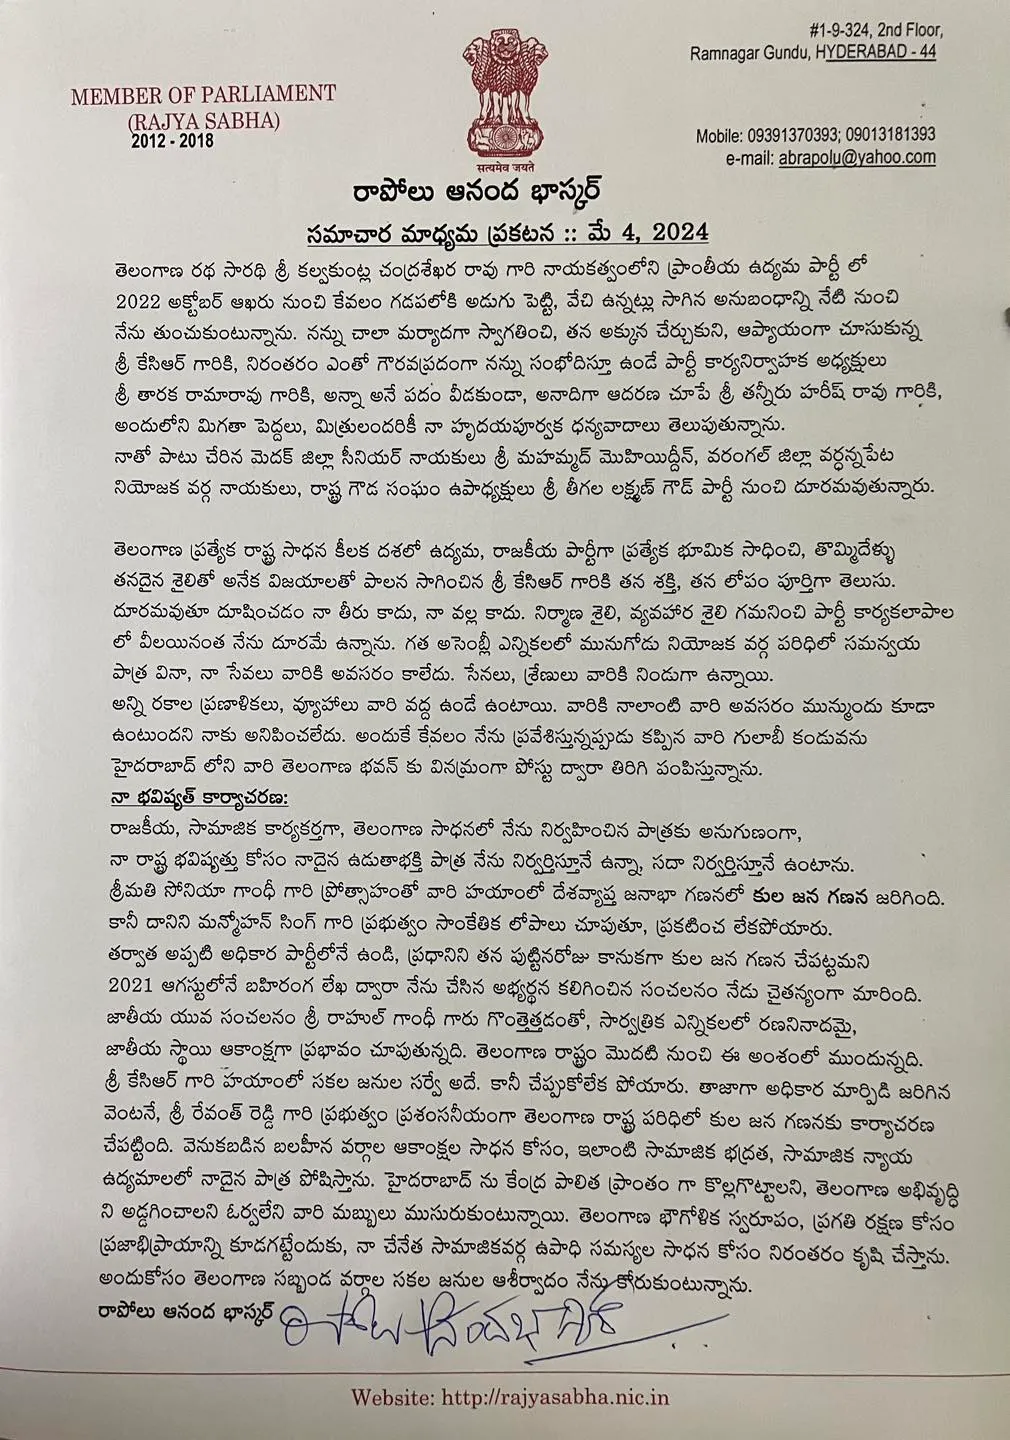 #1-9-324, 2nd Floor,
Ramnagar Gundu, HYDERABAD - 44
MEMBER OF PARLIAMENT
(RAJYA SABHA)
2012 - 2018
Mobile: 09391370393; 09013181393
e-mail: abrapolu@yahoo.com
सत्यमेव जयते
రాపోలు ఆనంద భాస్కర్
సమాచార మాధ్యమ ప్రకటన :: మే 4, 2024
తెలంగాణ రథ సారథి శ్రీ కల్వకుంట్ల చంద్రశేఖర రావు గారి నాయకత్వంలోని ప్రాంతీయ ఉద్యమ పార్టీ లో
2022 అక్టోబర్ ఆఖరు నుంచి కేవలం గడపలోకి అడుగు పెట్టి, వేచి ఉన్నట్లు సాగిన అనుబంధాన్ని నేటి నుంచి
నేను తుంచుకుంటున్నాను. నన్ను చాలా మర్యాదగా స్వాగతించి, తన అక్కున చేర్చుకుని, ఆప్యాయంగా చూసుకున్న
శ్రీ కేసిఆర్ గారికి, నిరంతరం ఎంతో గౌరవప్రదంగా నన్ను సంభోదిస్తూ ఉండే పార్టీ కార్యనిర్వాహక అధ్యక్షులు
శ్రీ తారక రామారావు గారికి, అన్నా అనే పదం వీడకుండా, అనాదిగా ఆదరణ చూపే శ్రీ తన్నీరు హరీష్ రావు గారికి,
అందులోని మిగతా పెద్దలు, మిత్రులందరికీ నా హృదయపూర్వక ధన్యవాదాలు తెలుపుతున్నాను.
నాతో పాటు చేరిన మెదక్ జిల్లా సీనియర్ నాయకులు శ్రీ మహమ్మద్ మొహియిద్దీన్, వరంగల్ జిల్లా వర్ధన్నపేట
నియోజక వర్గ నాయకులు, రాష్ట్ర గౌడ సంఘం ఉపాధ్యక్షులు శ్రీ తీగల లక్ష్మణ్ గౌడ్ పార్టీ నుంచి దూరమవుతున్నారు.
తెలంగాణ ప్రత్యేక రాష్ట్ర సాధన కీలక దశలో ఉద్యమ, రాజకీయ పార్టీగా ప్రత్యేక భూమిక సాధించి, తొమ్మిదేళ్ళు
తనదైన శైలితో అనేక విజయాలతో పాలన సాగించిన శ్రీ కేసిఆర్ గారికి తన శక్తి, తన లోపం పూర్తిగా తెలుసు.
దూరమవుతూ దూషించడం నా తీరు కాదు, నా వల్ల కాదు. నిర్మాణ శైలి, వ్యవహార శైలి గమనించి పార్టీ కార్యకలాపాల
లో వీలయినంత నేను దూరమే ఉన్నాను. గత అసెంబ్లీ ఎన్నికలలో మునుగోడు నియోజక వర్గ పరిధిలో సమన్వయ
పాత్ర వినా, నా సేవలు వారికి అవసరం కాలేదు. సేనలు, శ్రేణులు వారికి నిండుగా ఉన్నాయి.
అన్ని రకాల ప్రణాళికలు, వ్యూహాలు వారి వద్ద ఉండే ఉంటాయి. వారికి నాలాంటి వారి అవసరం మున్ముందు కూడా
ఉంటుందని నాకు అనిపించలేదు. అందుకే కేవలం నేను ప్రవేశిస్తున్నప్పుడు కప్పిన వారి గులాబీ కండువను
హైదరాబాద్ లోని వారి తెలంగాణ భవన్ కు వినమ్రంగా పోస్టు ద్వారా తిరిగి పంపిస్తున్నాను.
నా భవిష్యత్ కార్యాచరణ:
రాజకీయ, సామాజిక కార్యకర్తగా, తెలంగాణ సాధనలో నేను నిర్వహించిన పాత్రకు అనుగుణంగా,
నా రాష్ట్ర భవిష్యత్తు కోసం నాదైన ఉడుతాభక్తి పాత్ర నేను నిర్వర్తిస్తూనే ఉన్నా, సదా నిర్వర్తిస్తూనే ఉంటాను.
శ్రీమతి సోనియా గాంధీ గారి ప్రోత్సాహంతో వారి హయాంలో దేశవ్యాప్త జనాభా గణనలో కుల జన గణన జరిగింది.
కానీ దానిని మన్మోహన్ సింగ్ గారి ప్రభుత్వం సాంకేతిక లోపాలు చూపుతూ, ప్రకటించ లేకపోయారు.
తర్వాత అప్పటి అధికార పార్టీలోనే ఉండి, ప్రధానిని తన పుట్టినరోజు కానుకగా కుల జన గణన చేపట్టమని
2021 ఆగస్టులోనే బహిరంగ లేఖ ద్వారా నేను చేసిన అభ్యర్థన కలిగించిన సంచలనం నేడు చైతన్యంగా మారింది.
జాతీయ యువ సంచలనం శ్రీ రాహుల్ గాంధీ గారు గొంతెత్తడంతో, సార్వత్రిక ఎన్నికలలో రణనినాదమై,
జాతీయ స్థాయి ఆకాంక్షగా ప్రభావం చూపుతున్నది. తెలంగాణ రాష్ట్రం మొదటి నుంచి ఈ అంశంలో ముందున్నది.
శ్రీ కేసిఆర్ గారి హయాంలో సకల జనుల సర్వే అదే. కానీ చేప్పుకోలేక పోయారు. తాజాగా అధికార మార్పిడి జరిగిన
వెంటనే, శ్రీ రేవంత్ రెడ్డి గారి ప్రభుత్వం ప్రశంసనీయంగా తెలంగాణ రాష్ట్ర పరిధిలో కుల జన గణనకు కార్యాచరణ
చేపట్టింది. వెనుకబడిన బలహీన వర్గాల ఆకాంక్షల సాధన కోసం, ఇలాంటి సామాజిక భద్రత, సామాజిక న్యాయ
ఉద్యమాలలో నాదైన పాత్ర పోషిస్తాను. హైదరాబాద్ ను కేంద్ర పాలిత ప్రాంతం గా కొల్లగొట్టాలని, తెలంగాణ అభివృద్ధి
ని అడ్డగించాలని ఓర్వలేని వారి మబ్బులు ముసురుకుంటున్నాయి. తెలంగాణ భౌగోళిక స్వరూపం, ప్రగతి రక్షణ కోసం
ప్రజాభిప్రాయాన్ని కూడగట్టేందుకు, నా చేనేత సామాజికవర్గ ఉపాధి సమస్యల సాధన కోసం నిరంతరం కృషి చేస్తాను.
అందుకోసం తెలంగాణ సబ్బండ వర్గాల సకల జనుల ఆశీర్వాదం నేను కోరుకుంటున్నాను.
రాపోలు ఆనంద భాస్కర్
Website: http://rajyasabha.nic.in